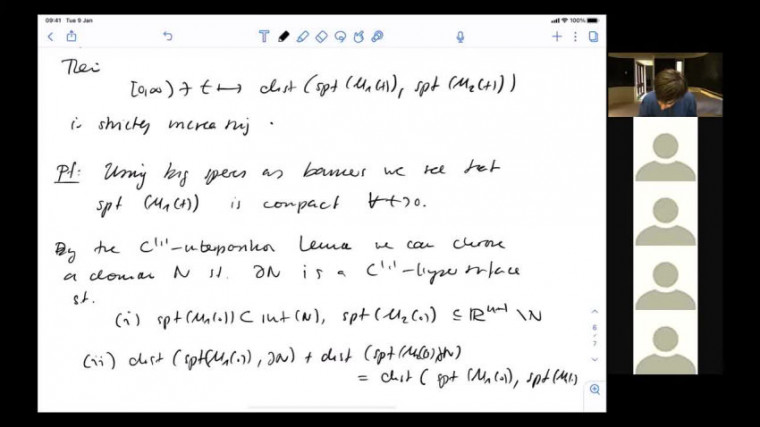 09:41 Tue 9 Jan
100%
Then
[0,∞) ∋ t ↦ dist (spt (M₁(t)), spt (M₂(t)))
is strictly increasing.
Pf: Using big spheres as barriers we see that
spt (M₁(t)) is compact ∀t>0.
By the C^{1,1}-interposition Lemma we can choose
a domain N st. ∂N is a C^{1,1}-hypersurface
st.
(i) spt(M₁(0)) ⊂ int(N), spt(M₂(0)) ⊆ ℝ^{n+1} \ N
(ii) dist (spt(M₁(0)), ∂N) + dist (spt(M₂(0)), ∂N)
= dist ( spt (M₁(0)), spt(M
6
7